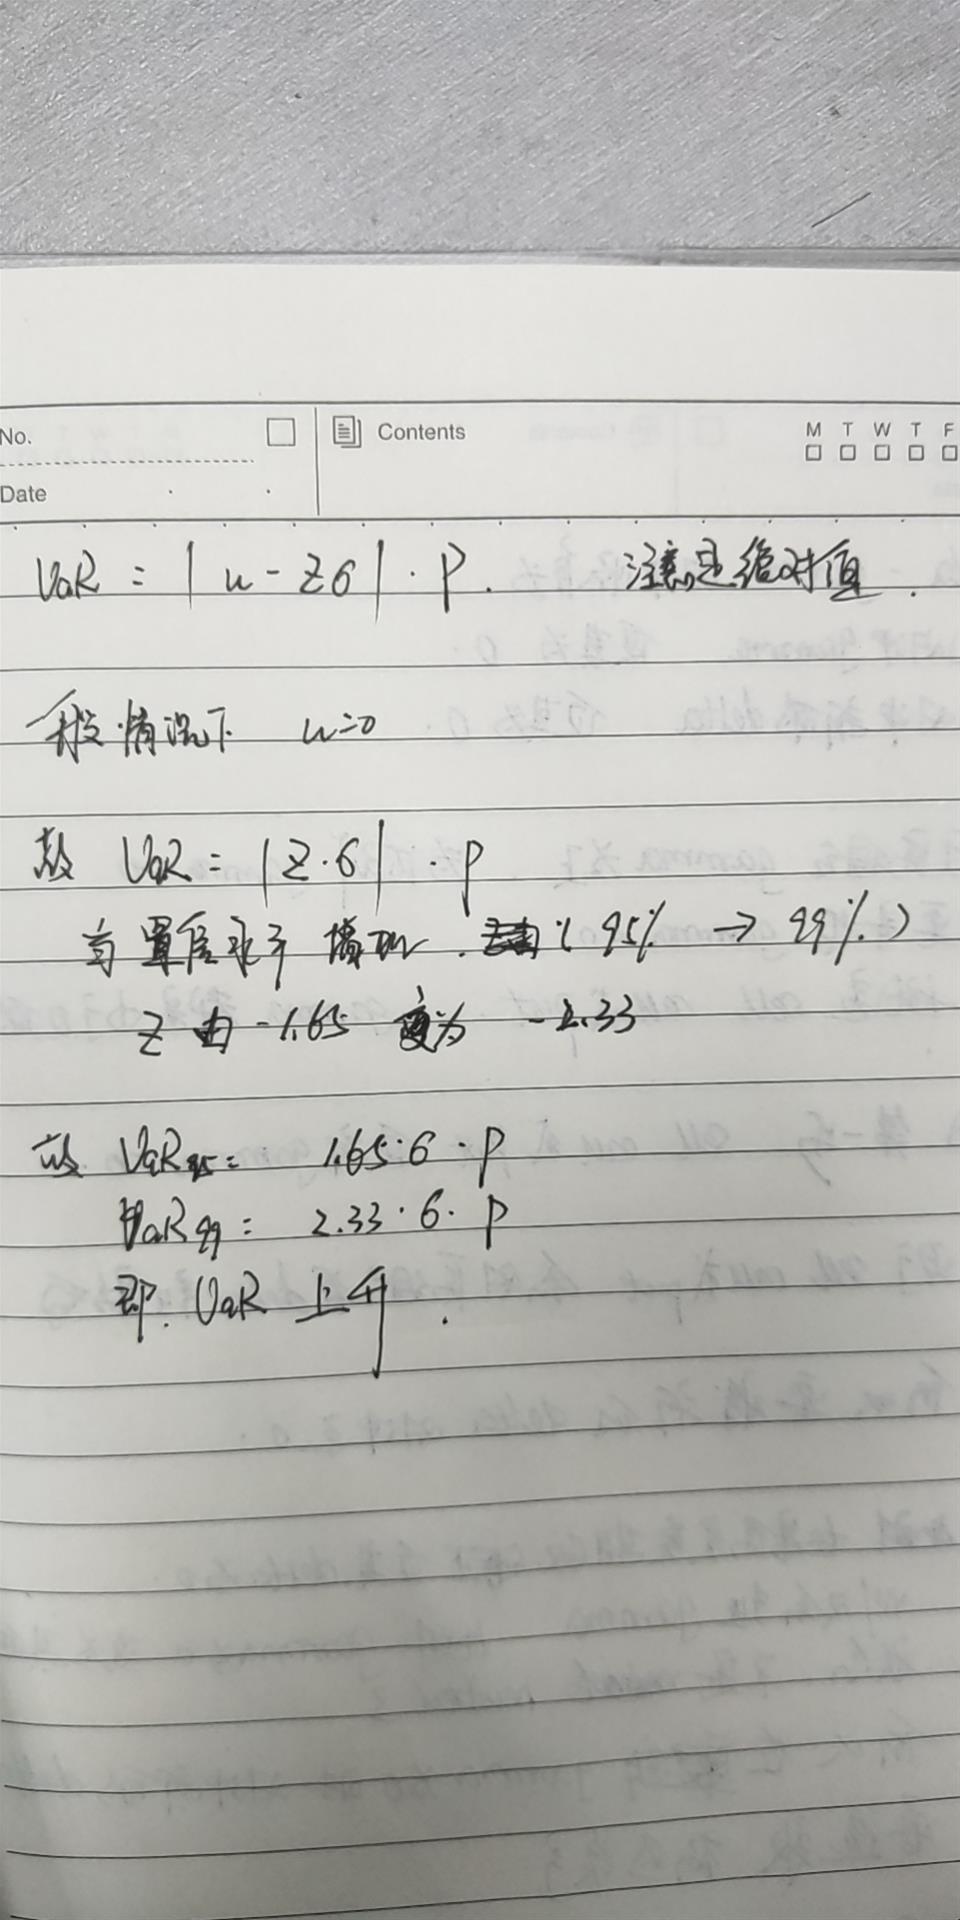 No.
Contents
M T W T F
Date
VaR = | u - Zσ | · P. 注意是绝对值.
一般情况下 u=0
故 VaR = | Z·σ | · P
当置信水平增加. (95% → 99%)
Z 由 -1.65 变为 -2.33
故 VaR95 = 1.65·σ·P
VaR99 = 2.33·σ·P
即. VaR 上升.